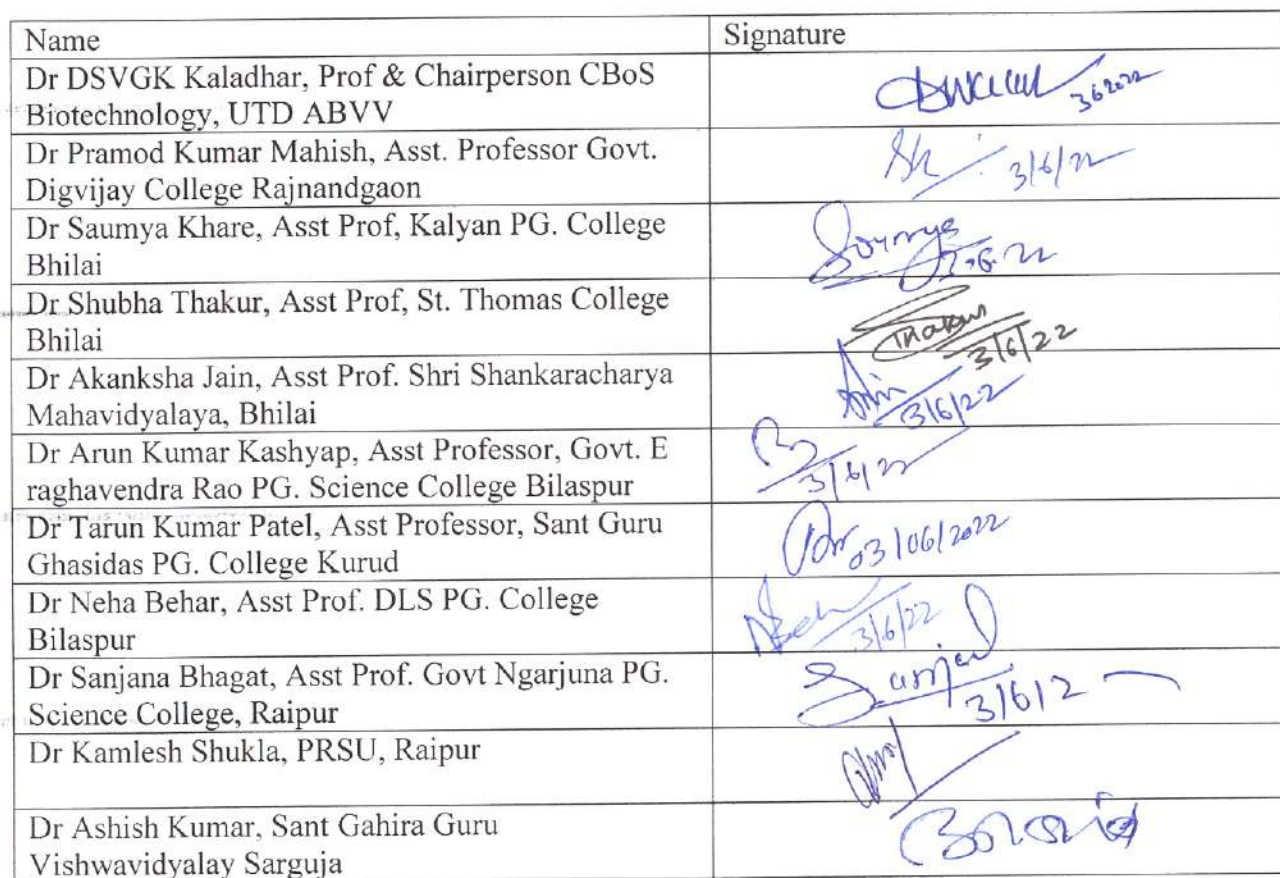 Name
Signature
Dr DSVGK Kaladhar, Prof & Chairperson CBoS
Biotechnology, UTD ABVV
3 6 2022
Dr Pramod Kumar Mahish, Asst. Professor Govt.
Digvijay College Rajnandgaon
3/6/22
Dr Saumya Khare, Asst Prof, Kalyan PG. College
Bhilai
Dr Shubha Thakur, Asst Prof, St. Thomas College
Bhilai
Thakur
3/6/22
Dr Akanksha Jain, Asst Prof. Shri Shankaracharya
Mahavidyalaya, Bhilai
3/6/22
Dr Arun Kumar Kashyap, Asst Professor, Govt. E
raghavendra Rao PG. Science College Bilaspur
3/6/22
Dr Tarun Kumar Patel, Asst Professor, Sant Guru
Ghasidas PG. College Kurud
03/06/2022
Dr Neha Behar, Asst Prof. DLS PG. College
Bilaspur
3/6/22
Dr Sanjana Bhagat, Asst Prof. Govt Ngarjuna PG.
Science College, Raipur
3/6/2
Dr Kamlesh Shukla, PRSU, Raipur
Dr Ashish Kumar, Sant Gahira Guru
Vishwavidyalay Sarguja